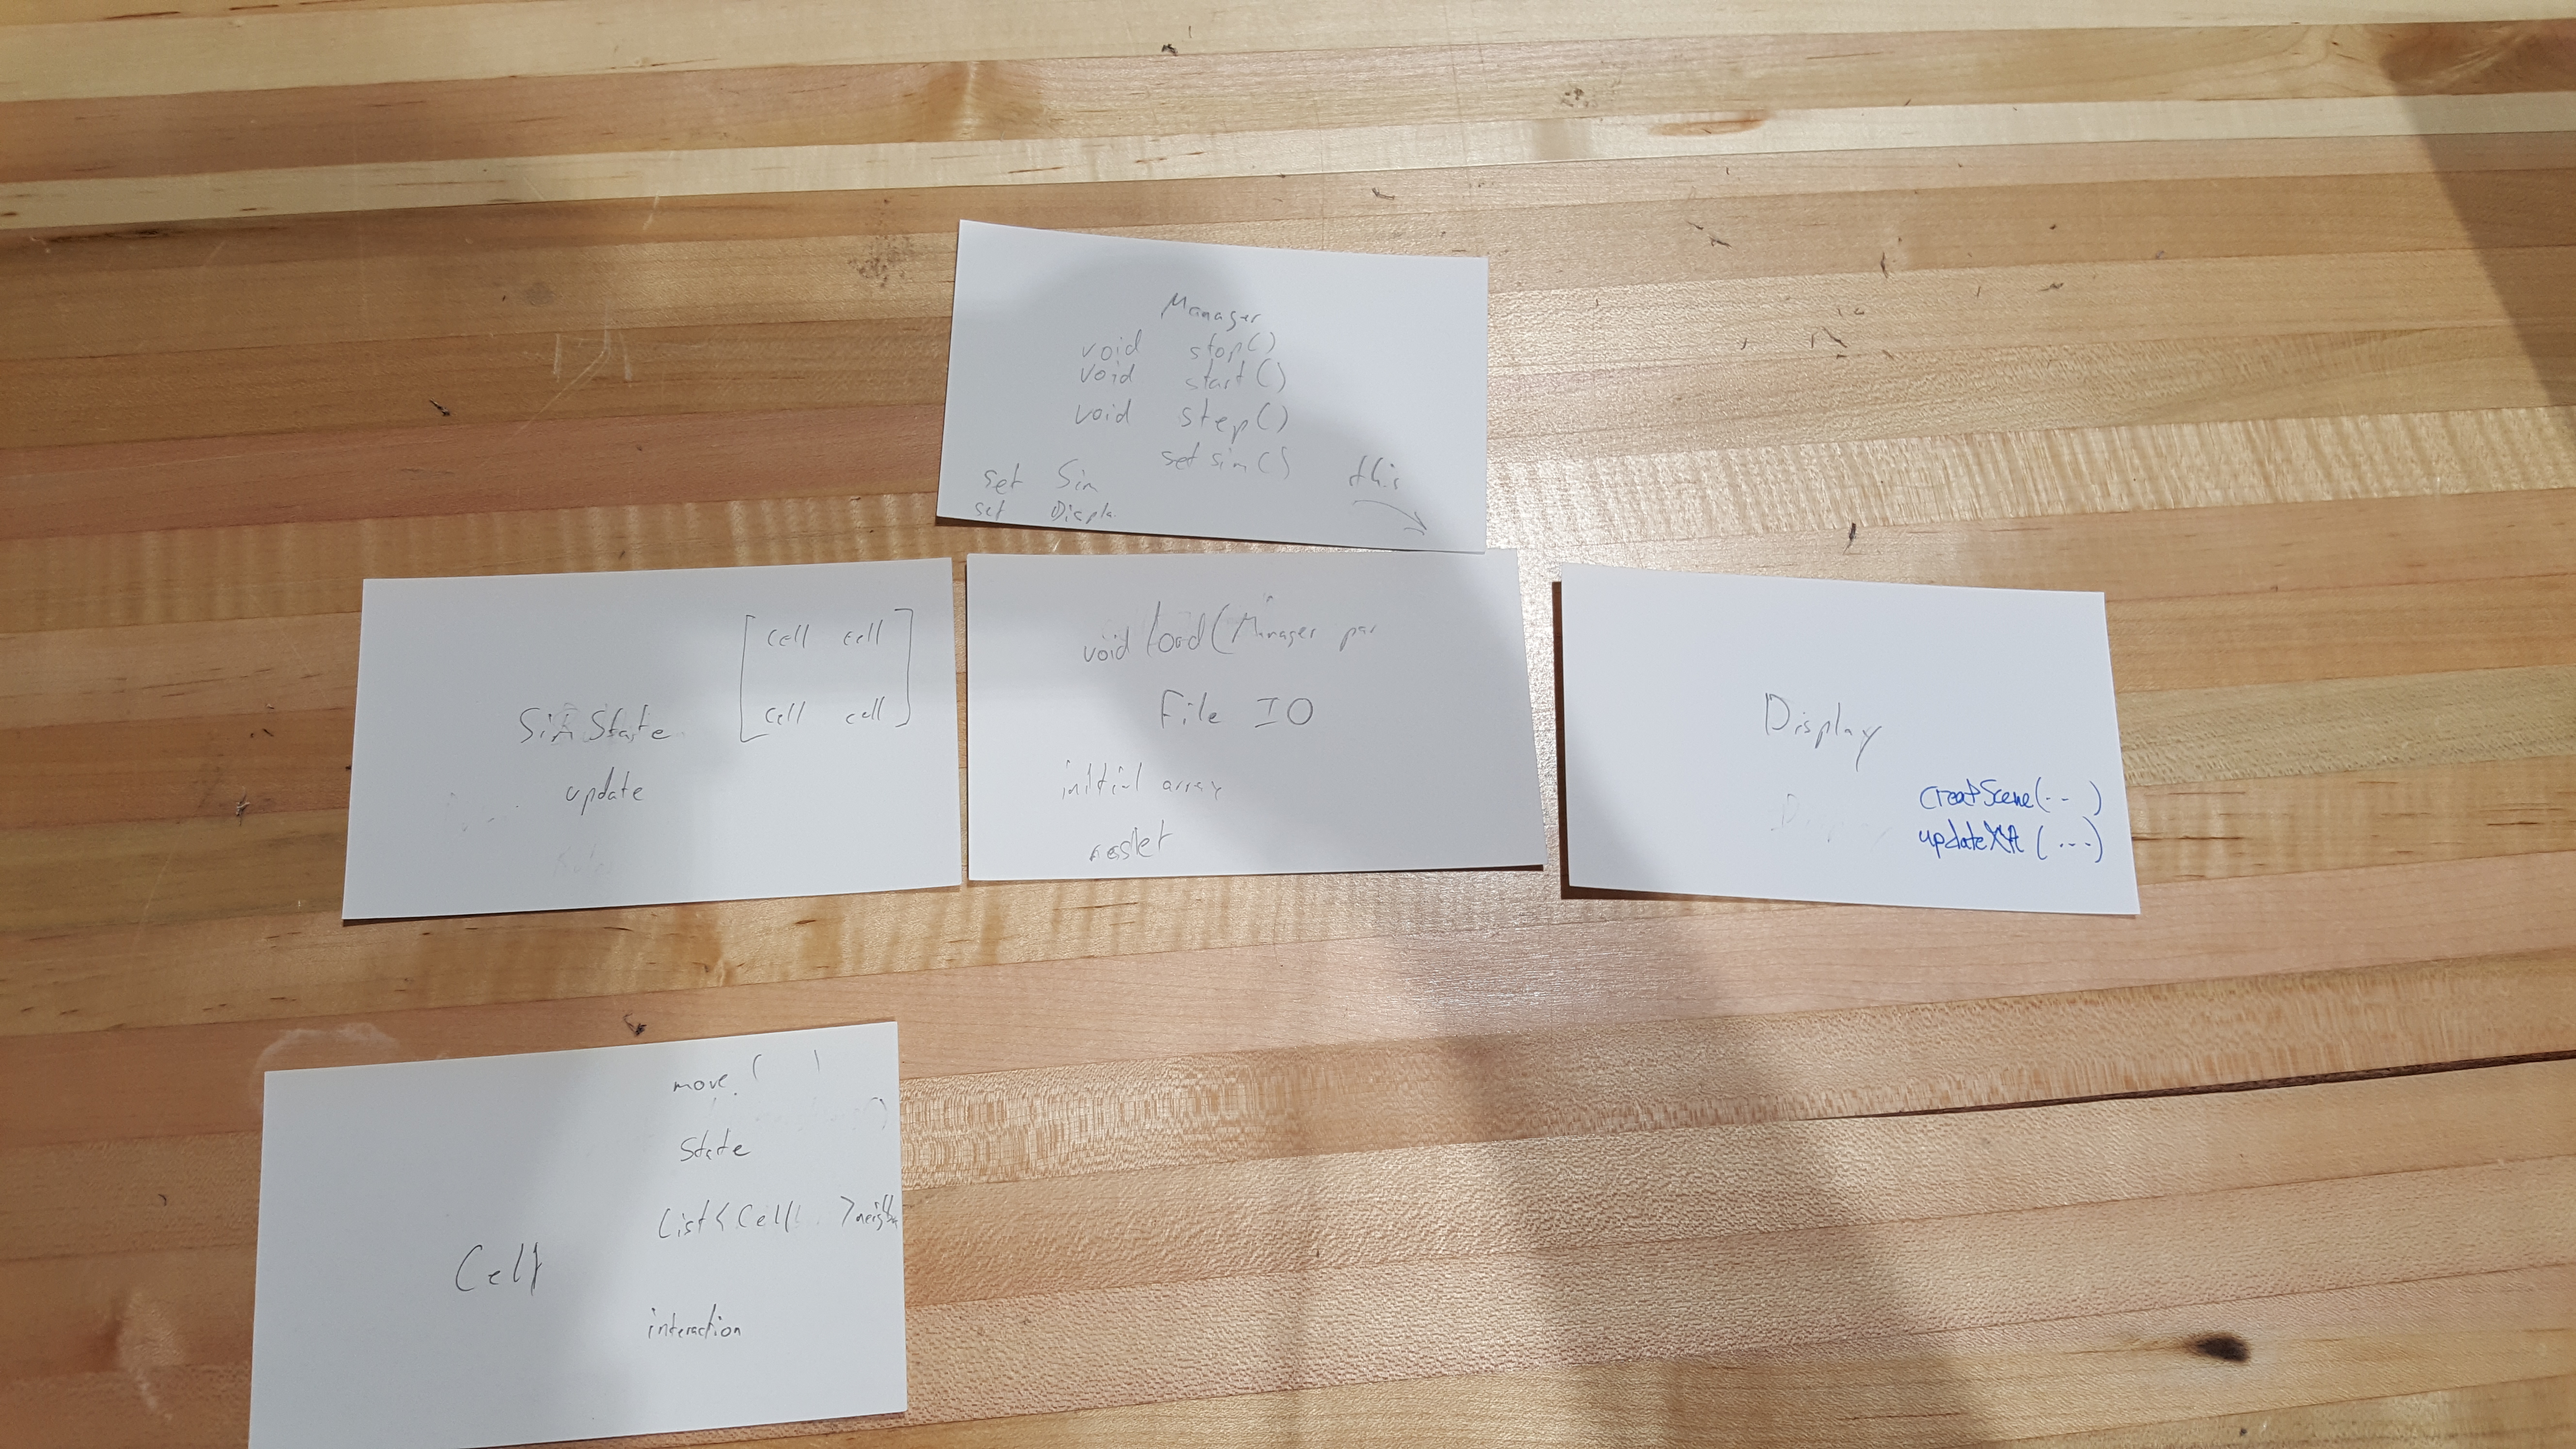 Manager
void stop()
void start()
void step()
set sim()
set Sim
this
set
SimState
[cell cell]
[cell cell]
update
void load(Manager
File IO
initial array
Display
creatScene(-- )
(---)
move (
State
List<Cell>
Cell
interaction